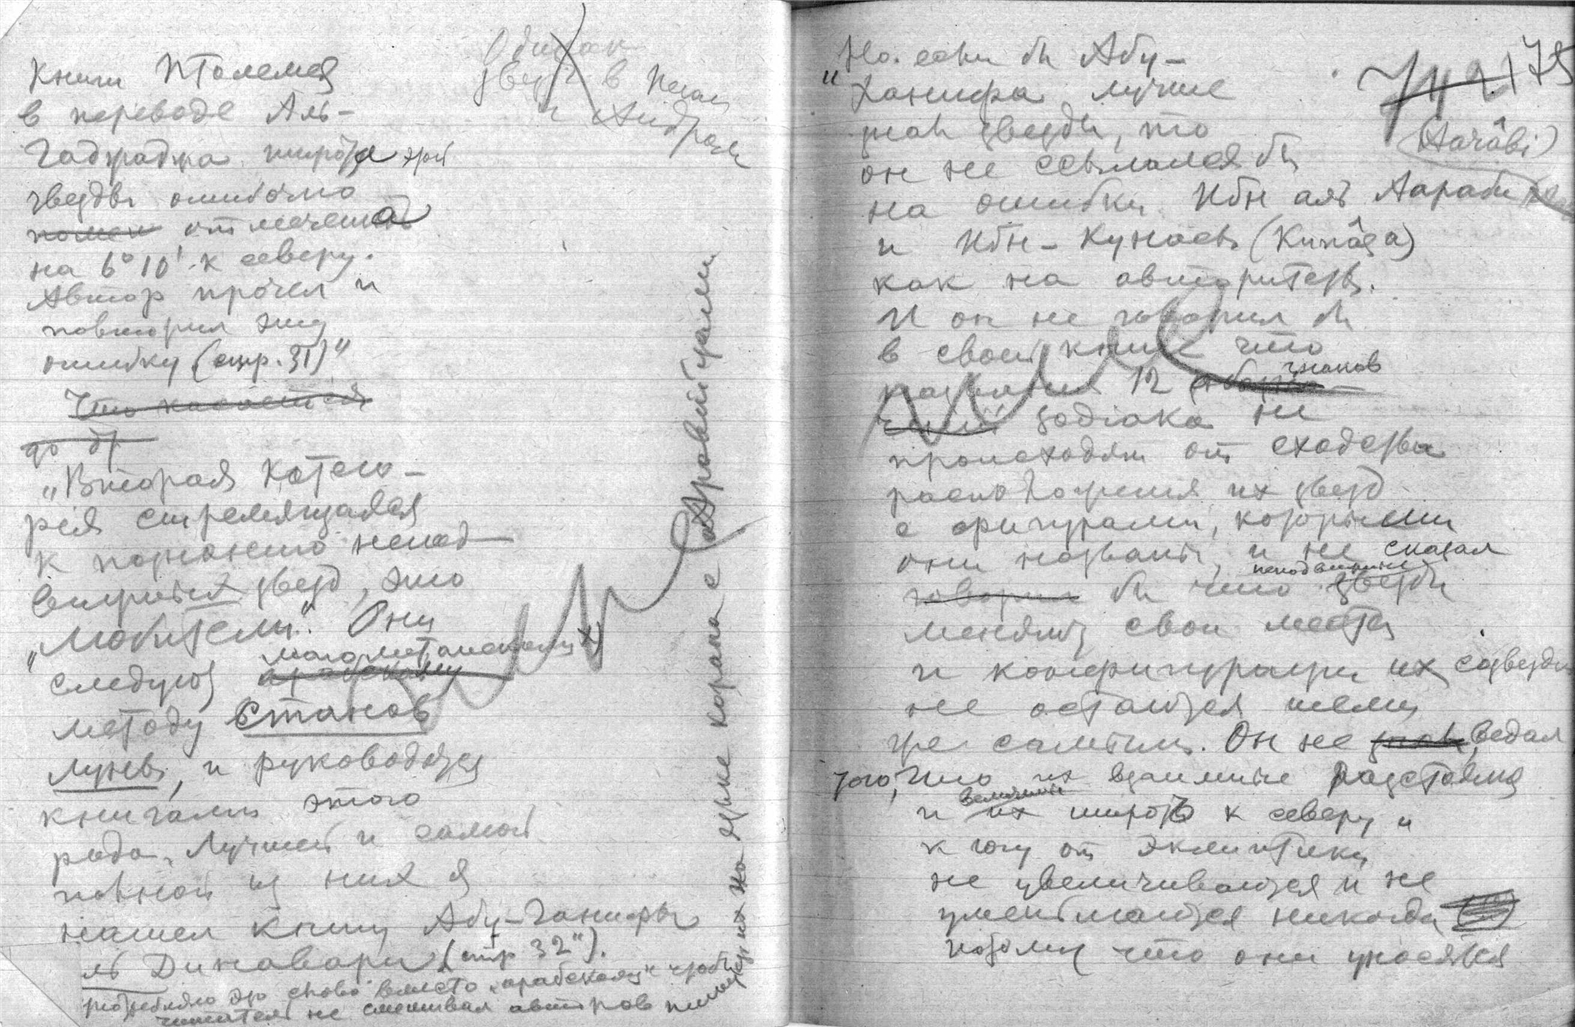 Книги Птолемея
в переводе Аль-
Гаджаджа широта этой
звезды ошибочно
отмечена
на 6° 10' к северу.
Автор прочел и
повторил эту
ошибку (стр. 31)"
Что касается
до
„Вторая катего-
рия стремящаяся
к познанию непод-
вижных звезд, это
„любители". Они
следуют магометанскому
арабскому
методу станов
луны, и руководятся
книгами этого
рода. Лучшей и самой
полной из них я
нашел книгу Абу-Ганифы
ль Динавари (стр 32").
употребляю это слово вместо „арабский" чтобы
читатель не смешивал авторов
на языке корана с аравийцами
звезд в Пегас
и Андром
175
(Aarâbi)
„Но если бы Абу-
Ханифа лучше
знал звезды, то
он не ссылался бы
на ошибки Ибн аль Аараби
и Ибн-Кунасы (Kunâsa)
как на авторитеты.
И он не говорил бы
в своей книге что
названия 12 знаков
зодіака не
происходят от сходства
расположения их звезд
с фигурами, которыми
они названы, и не сказал
говорил бы что неподвижные звезды
меняют свои места
и конфигурации их созвездий
не остаются теми
же самыми. Он не знал ведал
того, что их взаимные расстояния
и их величины широт к северу и
к югу от эклиптики
не увеличиваются и не
уменьшаются никогда
потому что они уносятся